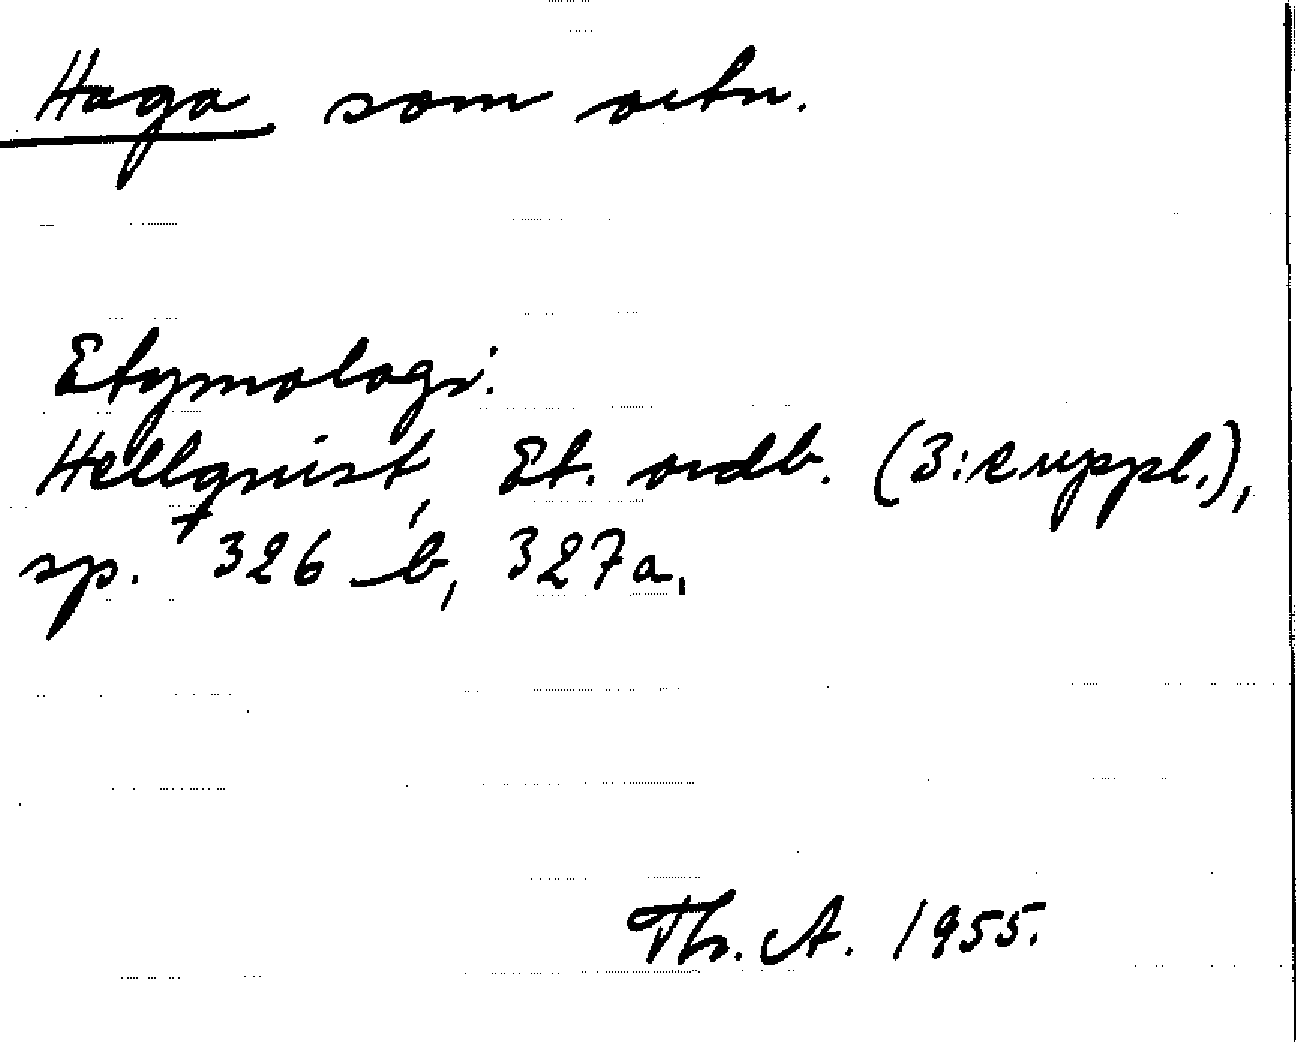 Haga som ortn.
Etymologi:
Hellquist, Et. ordb. (3:e uppl.),
sp. 326 b, 327a.
Th. A. 1955.